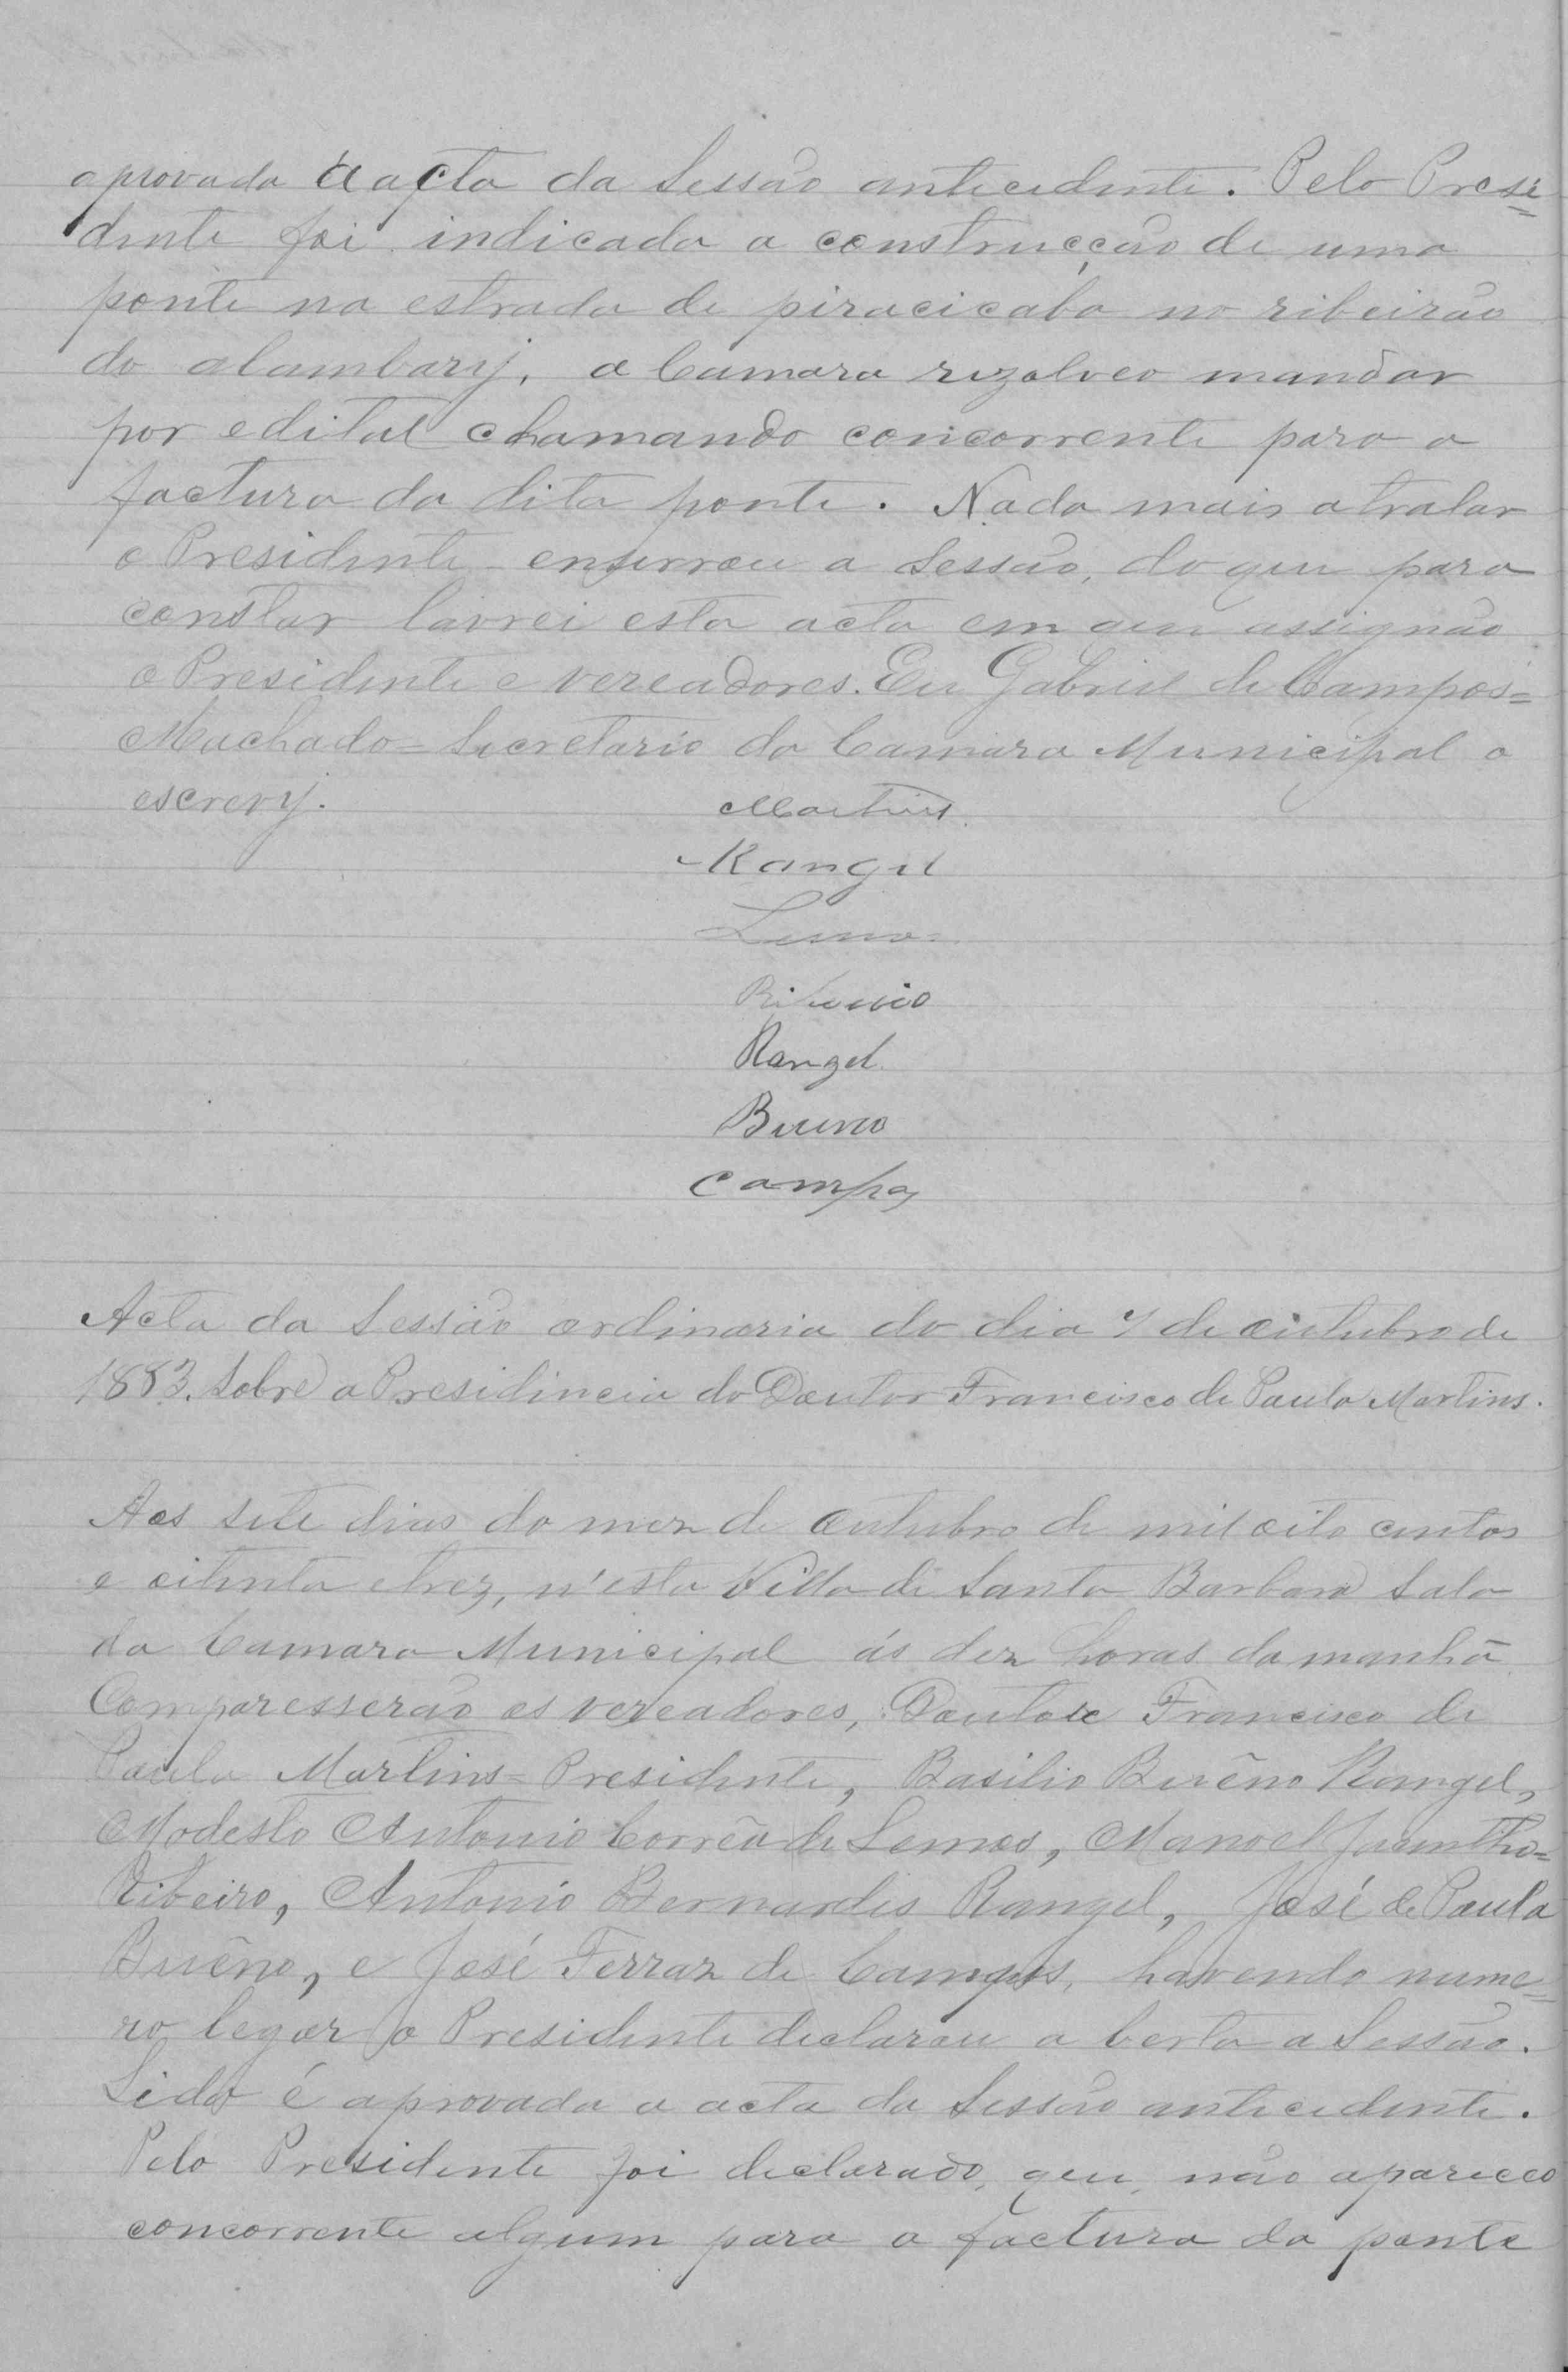 aprovada a acta da Sessão antecedente. Pelo Presi=
dente foi indicada a construcção de uma
ponte na estrada de piracicaba no ribeirão
do alambary, a Camara rezolveo mandar
por edital chamando concorrente para a
factura da dita ponte. Nada mais a tratar
o Presidente enserrou a Sessão, do que para
constar lavrei esta acta em que assignão
o Presidente e vereadores. Eu Gabriel de Campos=
Machado= Secretario da Camara Municipal o
escrevy.
Martins
Rangel
Lemos
Ribeiro
Rangel
Bueno
Campos
Acta da Sessão ordinaria do dia 7 de outubro de
1883. Sobre a Presidincia do Doutor Francisco de Paula Martins.
Aos sete dias do mez de Outubro de mil oito centos
e oitenta e trez, n'esta Villa de Santa Barbara Sala
da Camara Municipal ás dez horas da manhã
Comparesserão os vereadores, Doutor Francisco de
Paula Martins= Presidente, Basilio Buêno Rangel,
Modesto Antonio Corrêa de Lemos, Manoel Jacintho=
Ribeiro, Antonio Bernardis Rangel, José de Paula
Buêno, e José Ferraz de Campos, havendo nume=
ro legar o Presidente declarou a berta a Sessão.
Lida é aprovada a acta da Sessão antecedente.
Pelo Presidente foi declarado, que, não apareceo
concorrente algum para a factura da ponte